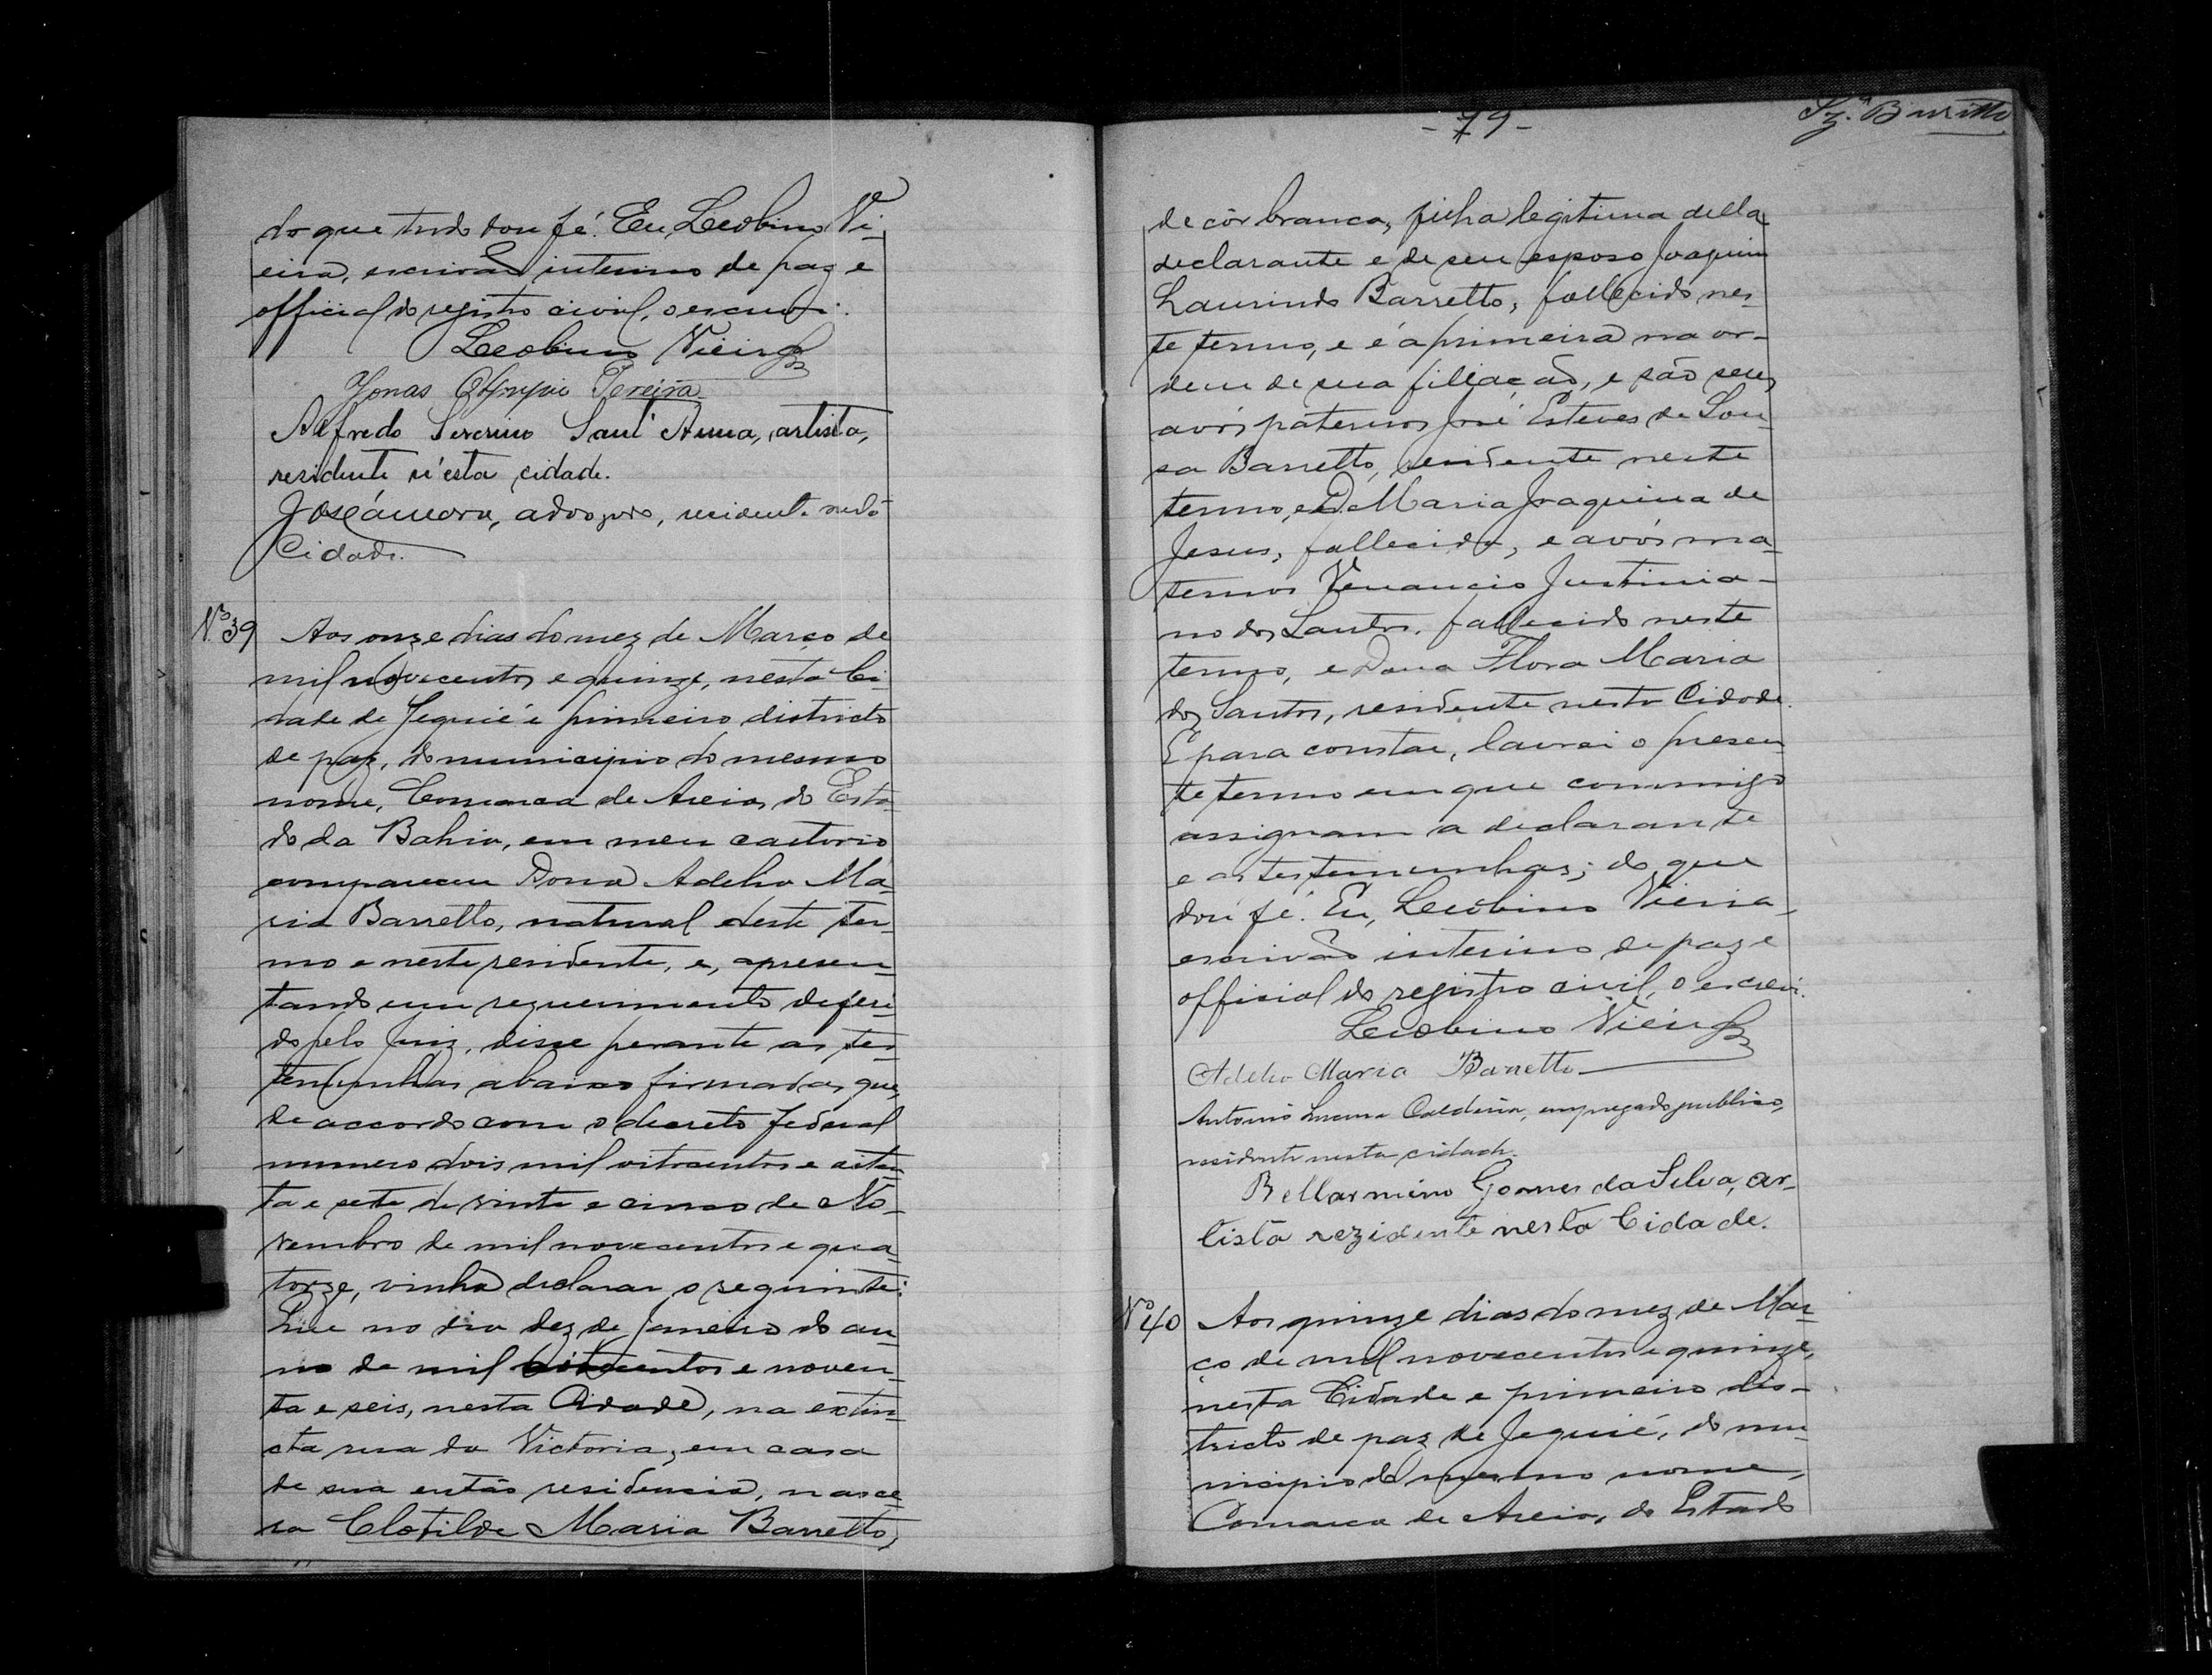 do que tudo dou fé. Eu, Leobino Vi-
eira, escrivão interino de paz e
official do registro civil, o escrevi.
Leobino Vieira
Jonas Olympio Pereira
Alfredo Severino Sant'Anna, artista,
residente n'esta cidade.
advogado, residente nesta
Cidade.
Nº 39 Aos onze dias do mez de Março de
mil novecentos e quinze, nesta Ci-
dade de Jequié e primeiro districto
de paz, do municipio do mesmo
nome, Comarca de Areia, do Esta-
do da Bahia, em meu cartorio
compareceu Dona Adelia Ma-
ria Barretto, natural deste ter-
mo e neste residente, e, apresen-
tando um requerimento deferi-
do pelo Juiz, disse perante as tes-
temunhas abaixo firmadas que,
de accordo com o decreto federal
numero dois mil oitocentos e oiten-
ta e sete de vinte e cinco de No-
vembro de mil novecentos e qua-
torze, vinha declarar o seguinte:
Que no dia dez de janeiro do an-
no de mil oitocentos e noven-
ta e seis, nesta Cidade, na extin-
cta rua da Victoria, em casa
de sua então residencia, nasce-
ra Clotilde Maria Barretto,
- 79 -
de côr branca, filha legitima della
declarante e de seu esposo Joaquim
Laurindo Barretto, fallecido nes-
te termo, e é a primeira na or-
dem de sua filiação, e são seus
avós paternos José Esteves de Sou-
sa Barretto, residente neste
termo, e D. Maria Joaquina de
Jesus, fallecida, e avós ma-
ternos Venancio Justinia-
no dos Santos, fallecido neste
termo, e Dona Flora Maria
dos Santos, residente nesta Cidade.
E para constar, lavrei o presen-
te termo em que commigo
assignam a declarante
e as testemunhas; do que
dou fé. Eu, Leobino Vieira,
escrivão interino de paz e
official do registro civil, o escrevi.
Leobino Vieira
Adelia Maria Barretto
Antonio Lucena Caldeira, empregado publico,
residente nesta cidade.
Bellarmino Gomes da Silva, ar-
tista rezidente nesta Cidade.
Nº 40 Aos quinze dias do mez de Mar-
ço de mil novecentos e quinze,
nesta Cidade e primeiro dis-
tricto de paz de Jequié, do mu-
nicipio do mesmo nome,
Comarca de Areia, do Estado